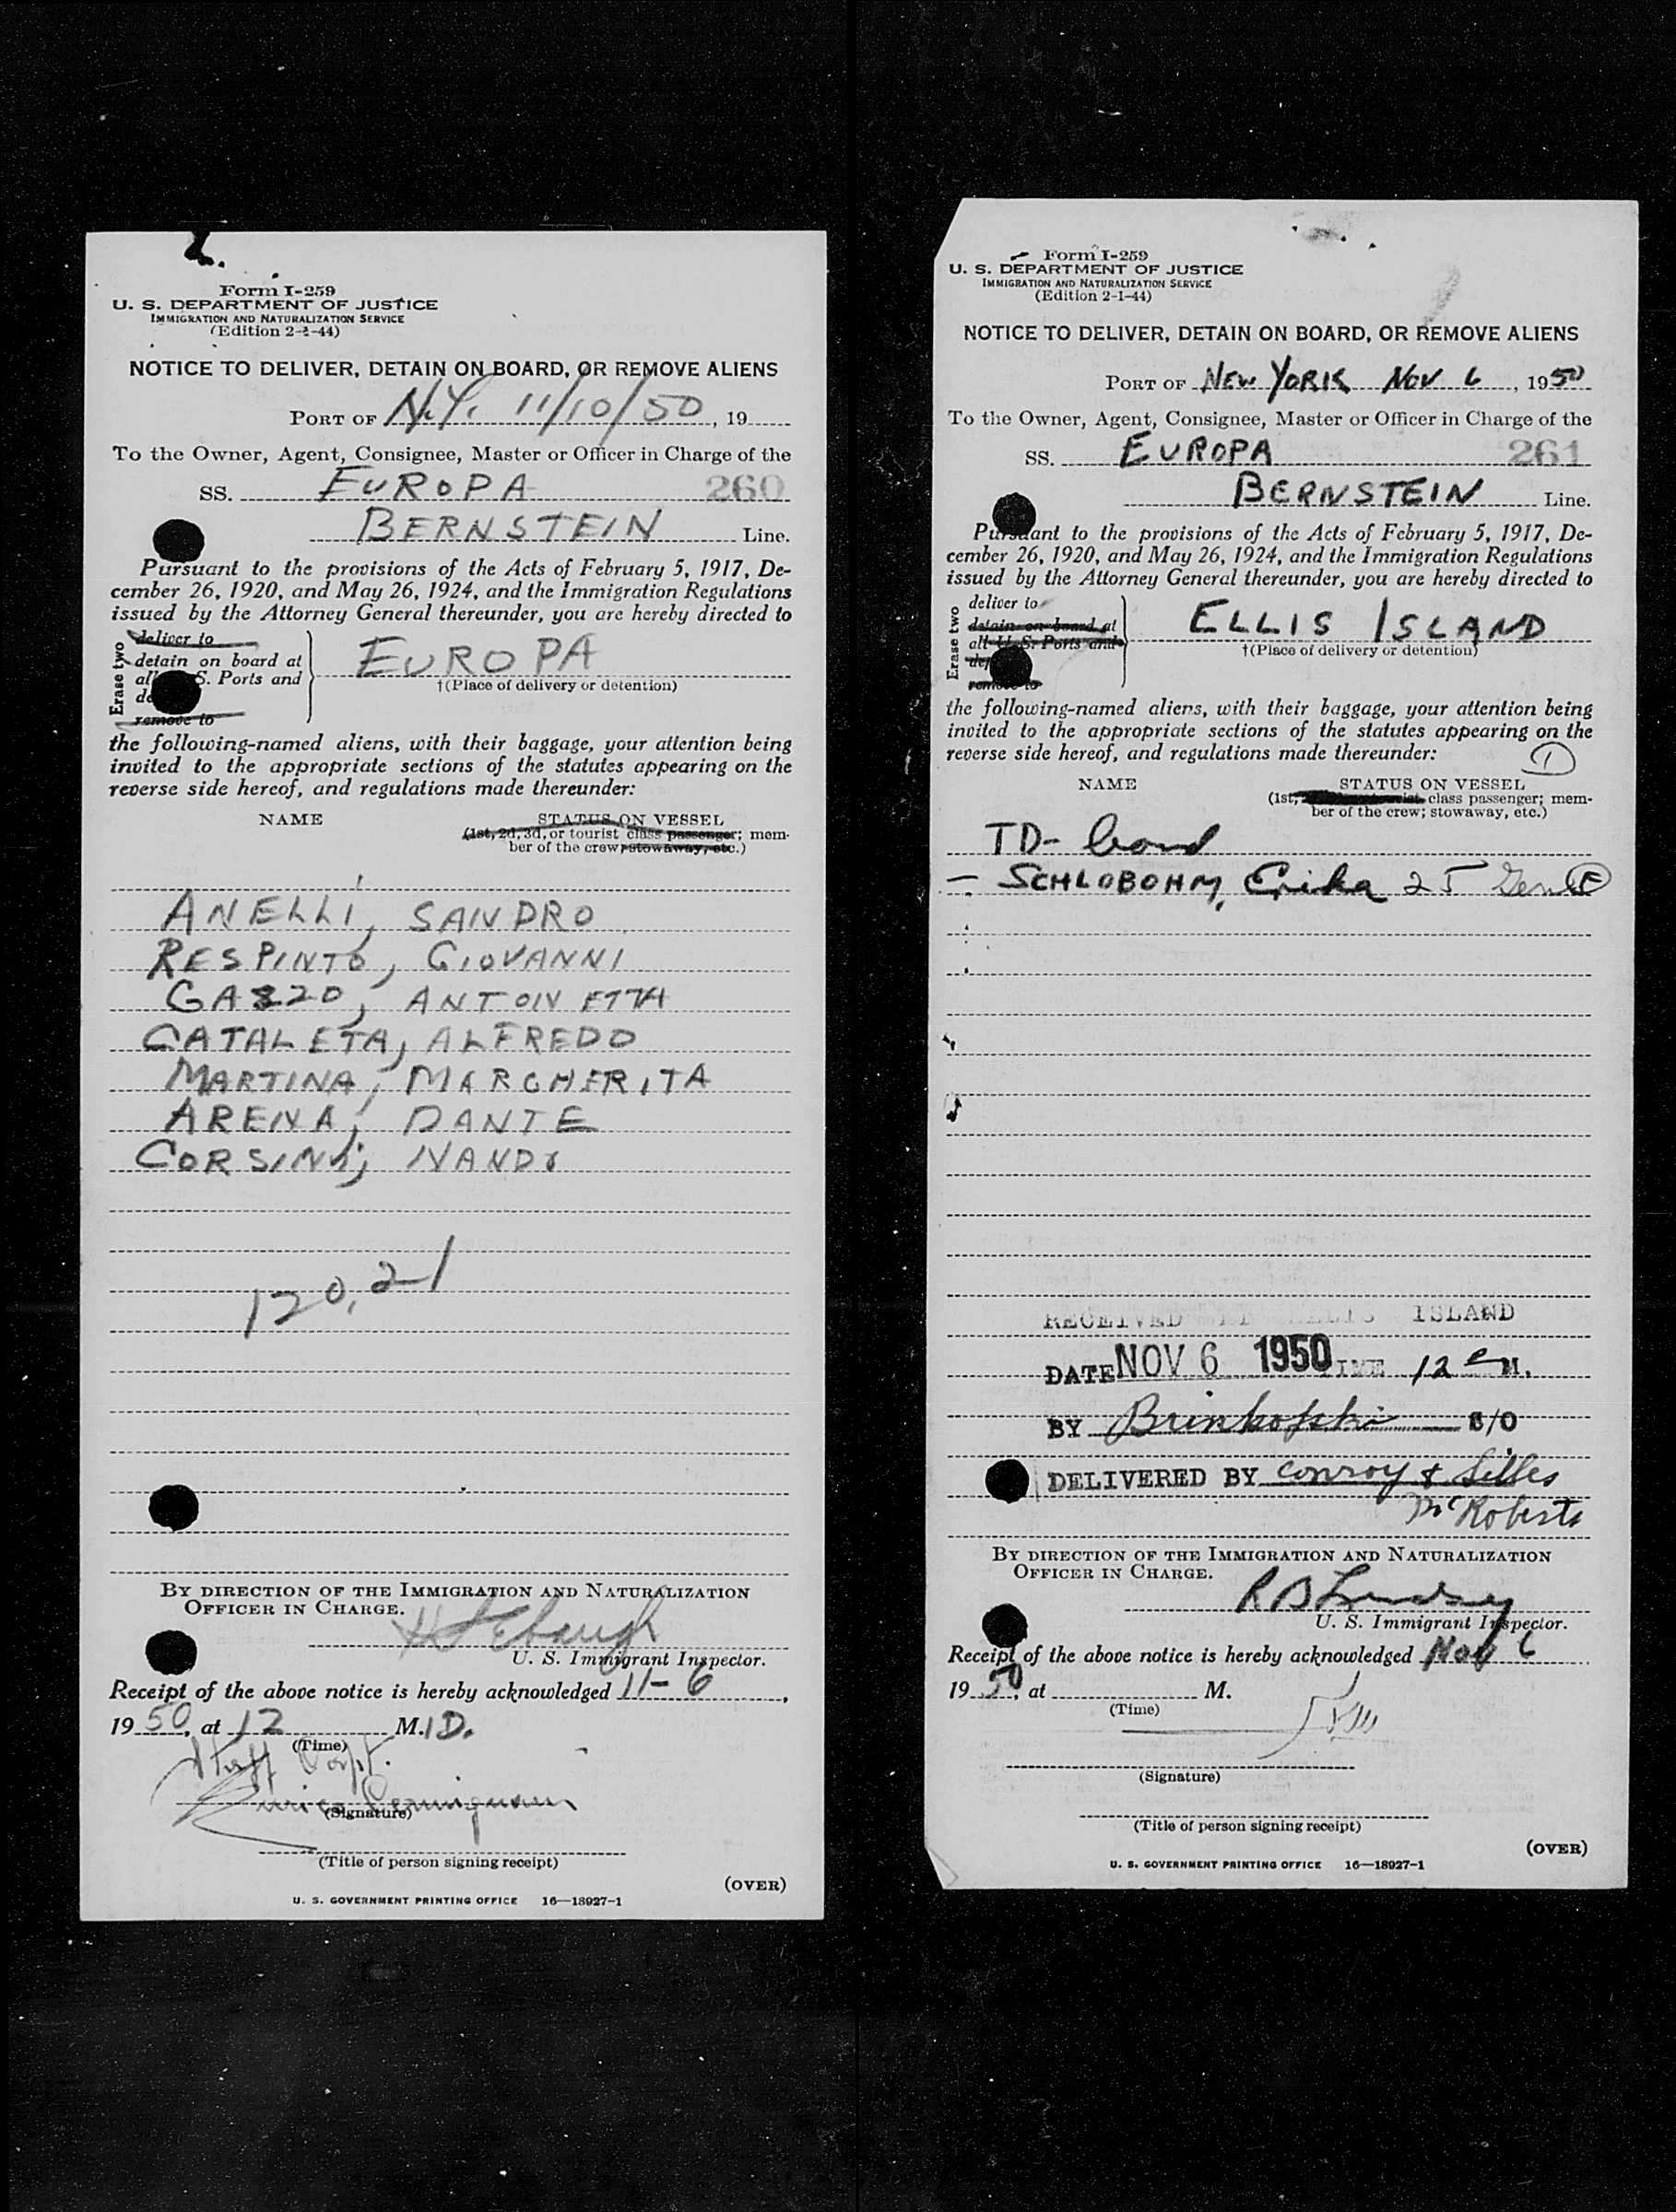 Form I-259
U. S. DEPARTMENT OF JUSTICE
IMMIGRATION AND NATURALIZATION SERVICE
(Edition 2-1-44)
NOTICE TO DELIVER, DETAIN ON BOARD, OR REMOVE ALIENS
PORT OF N.Y. 11/10/50, 19
To the Owner, Agent, Consignee, Master or Officer in Charge of the
SS. EUROPA 260
BERNSTEIN Line.
Pursuant to the provisions of the Acts of February 5, 1917, De-
cember 26, 1920, and May 26, 1924, and the Immigration Regulations
issued by the Attorney General thereunder, you are hereby directed to
Erase two
deliver to
detain on board at
all S. Ports and
remove to
EUROPA
†(Place of delivery or detention)
the following-named aliens, with their baggage, your attention being
invited to the appropriate sections of the statutes appearing on the
reverse side hereof, and regulations made thereunder:
NAME STATUS ON VESSEL
(1st, 2d, 3d, or tourist class passenger; mem-
ber of the crew; stowaway, etc.)
ANELLI, SANDRO
RESPINTO, GIOVANNI
ANTONIETTA
CATALETA, ALFREDO
MARTINA, MARGHERITA
ARENA, DANTE
CORSINI, NANDO
120, 21
BY DIRECTION OF THE IMMIGRATION AND NATURALIZATION
OFFICER IN CHARGE.
U. S. Immigrant Inspector.
Receipt of the above notice is hereby acknowledged 11-6,
19 50, at 12 M. ID.
(Time)
Staff Capt.
(Signature)
(Title of person signing receipt)
(OVER)
U. S. GOVERNMENT PRINTING OFFICE 16—18927-1
Form I-259
U. S. DEPARTMENT OF JUSTICE
IMMIGRATION AND NATURALIZATION SERVICE
(Edition 2-1-44)
NOTICE TO DELIVER, DETAIN ON BOARD, OR REMOVE ALIENS
PORT OF NEW YORK NOV 6, 1950
To the Owner, Agent, Consignee, Master or Officer in Charge of the
SS. EUROPA 261
BERNSTEIN Line.
Pursuant to the provisions of the Acts of February 5, 1917, De-
cember 26, 1920, and May 26, 1924, and the Immigration Regulations
issued by the Attorney General thereunder, you are hereby directed to
Erase two
deliver to
detain on board at
all U. S. Ports and
remove to
ELLIS ISLAND
†(Place of delivery or detention)
the following-named aliens, with their baggage, your attention being
invited to the appropriate sections of the statutes appearing on the
reverse side hereof, and regulations made thereunder:
1
NAME STATUS ON VESSEL
(1st, class passenger; mem-
ber of the crew; stowaway, etc.)
TD-
- SCHLOBOHM, Erika 25 F
RECEIVED AT ELLIS ISLAND
DATE NOV 6 1950 TIME 12 M.
BY Brinkofski S/O
DELIVERED BY Conroy &
McRoberts
BY DIRECTION OF THE IMMIGRATION AND NATURALIZATION
OFFICER IN CHARGE.
R B Lindsey
U. S. Immigrant Inspector.
Receipt of the above notice is hereby acknowledged Nov 6
19 50, at M.
(Time)
(Signature)
(Title of person signing receipt)
(OVER)
U. S. GOVERNMENT PRINTING OFFICE 16—18927-1